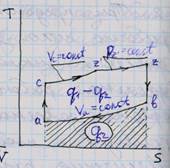 T
V=const
P=const
z'
z
c
q₁-q₂
V=const
a
b
q₂
S